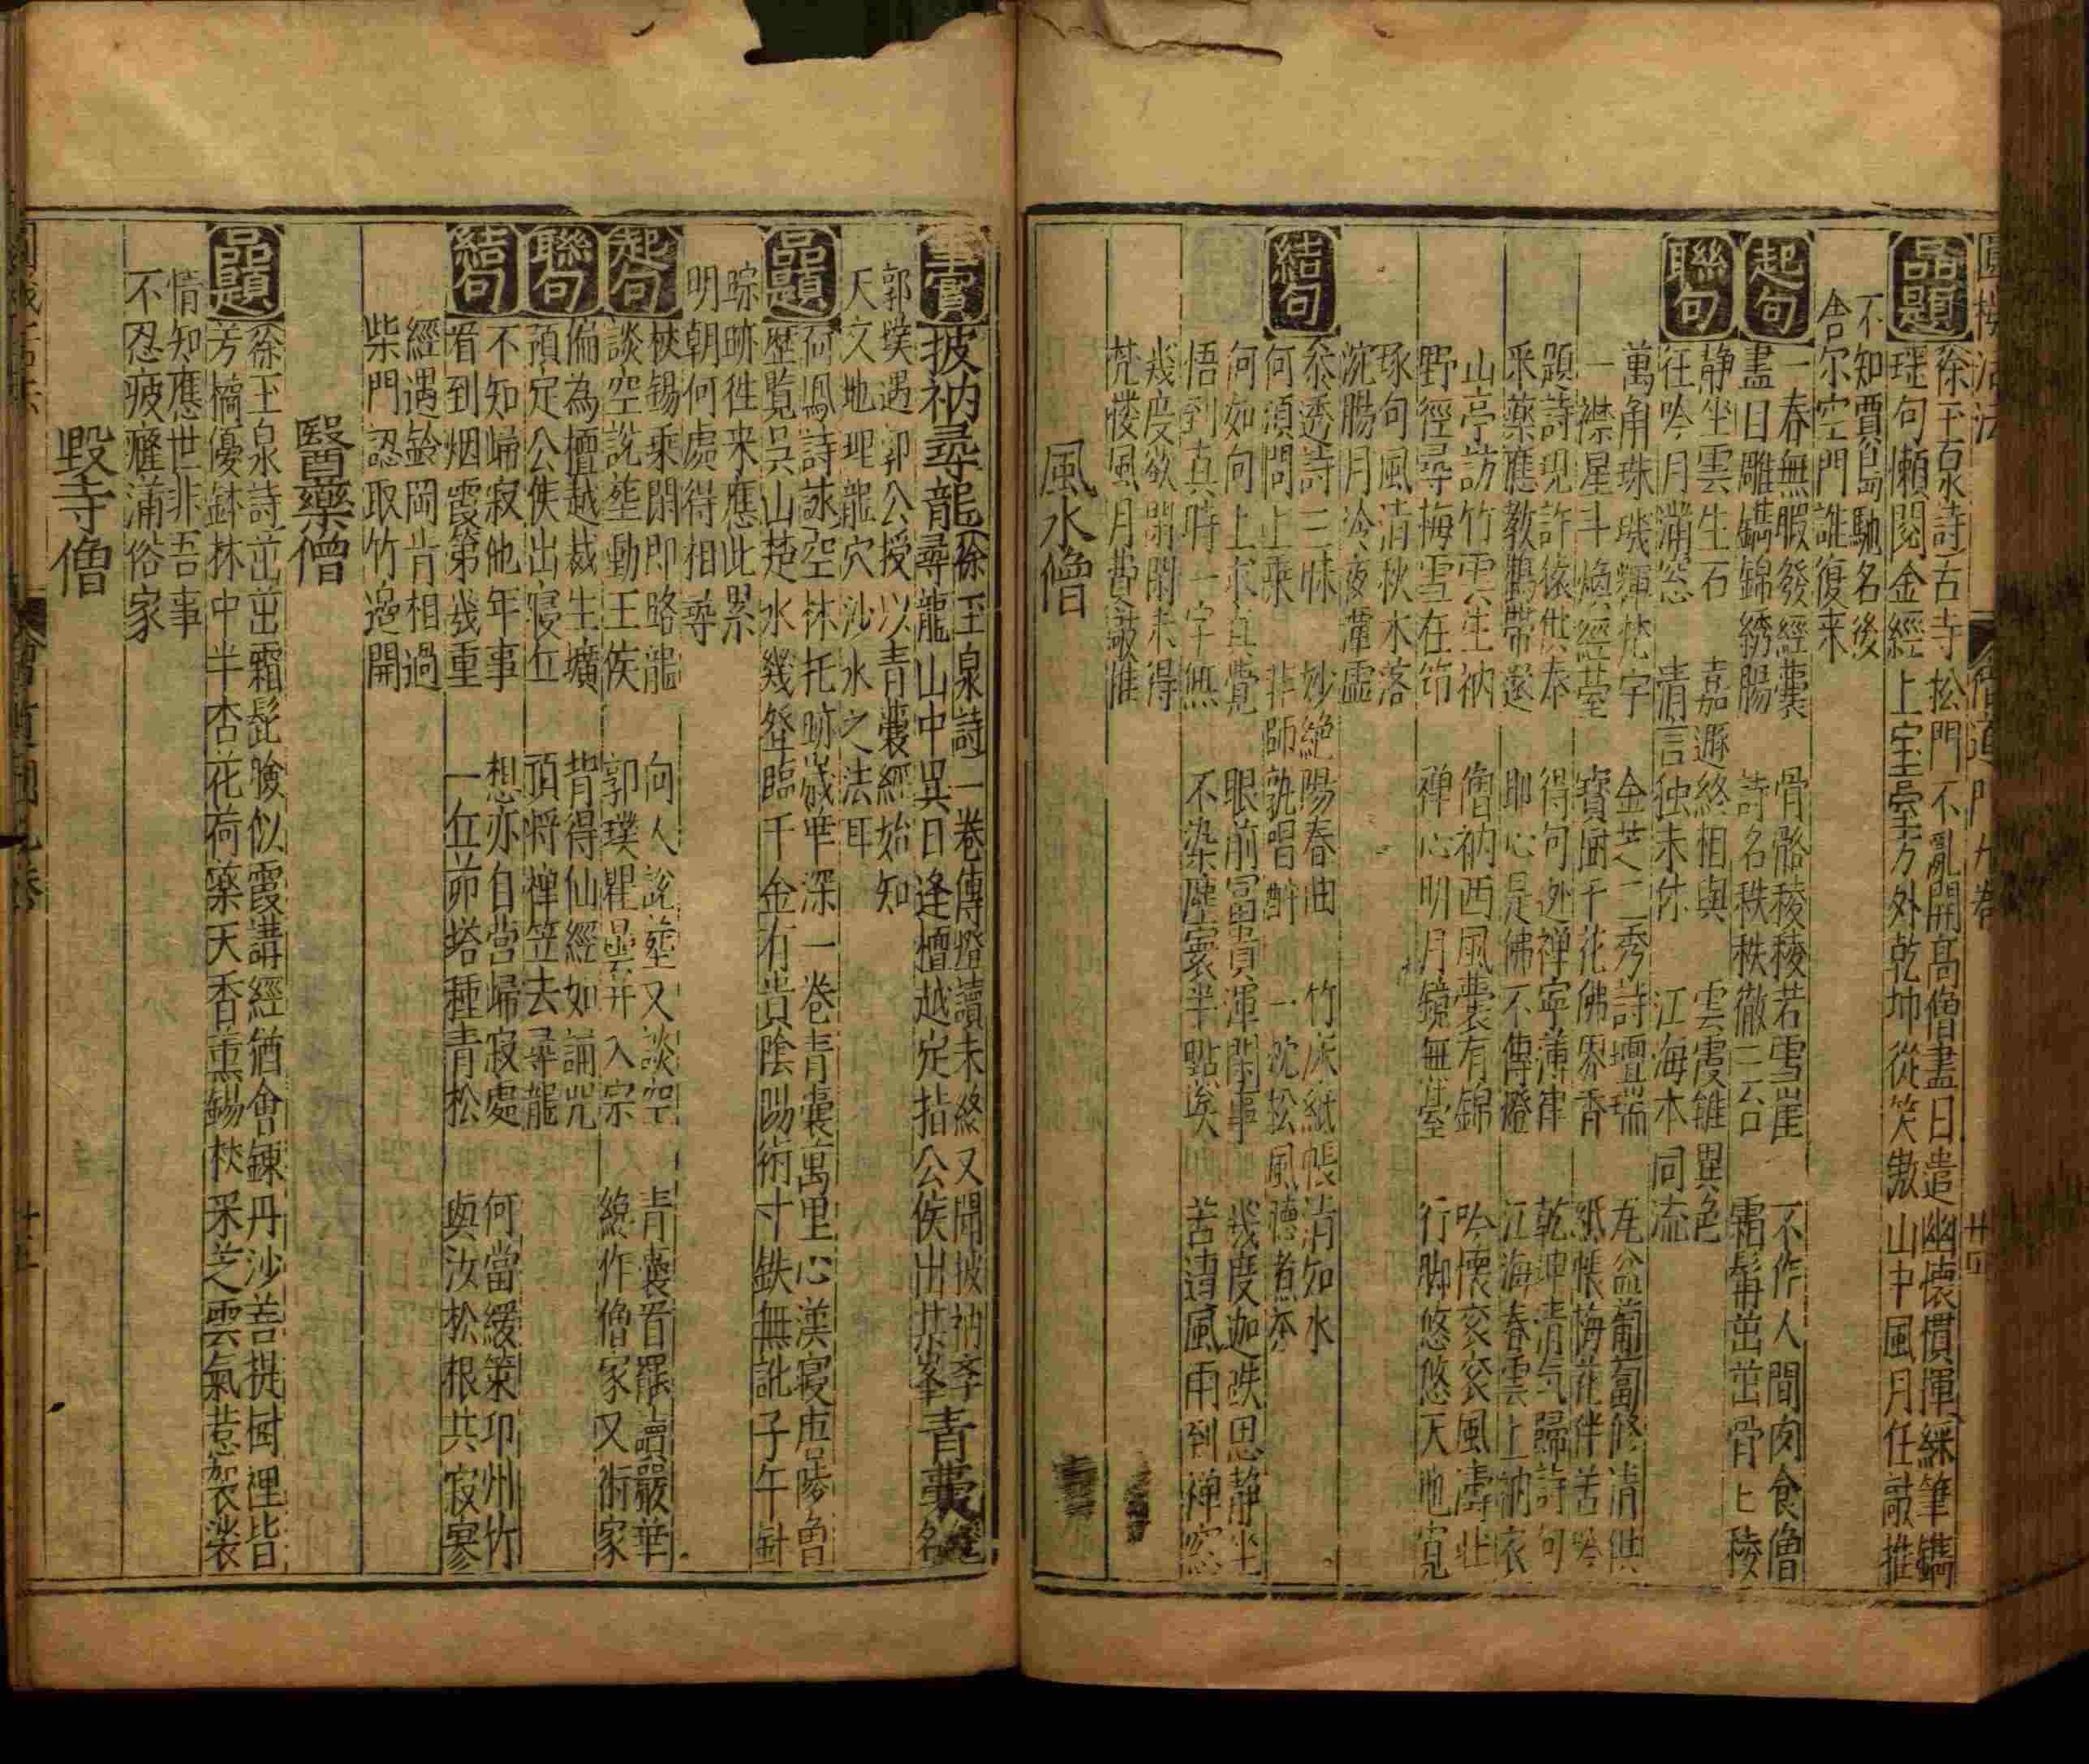 品題
徐玉泉詩古寺松門不亂開高僧盡日遣幽懷慣揮綵筆鐫
琁句懶閱金經上宝臺方外乾坤從笑傲山中風月任敲推
不知賈島馳名後
舍尔空門誰復来
起句
一春無暇發經囊 骨骼稜稜若雪崖 不作人間肉食僧
盡日雕鐫錦綉腸 詩名秩秩徹三台 霜髯茁茁骨稜稜
聯句
静坐雲生石 嘉遯終相與 雲霞雖異色
往吟月滿窓 清言独未休 江海本同流
萬角珠璣輝梵宇 金芝二秀詩壇瑞 瓦盆葡萄修清供
一襟星斗煥經臺 寶厨千花佛界香 紙帳梅花伴苦吟
題詩現許猿供奉 得句迯禅寧薄律 乾坤清气歸詩句
采藥應教鶴帶還 耶心是佛不傳燈 江海春雲上衲衣
山亭訪竹雲生衲 僧衲西風囊有錦 吟懷衮衮風濤壯
野徑尋梅雪在笻 禅心明月鏡無臺 行脚悠悠天地寬
琢句風清秋木落
浣腸月冷夜潭虚
結句
叅透詩三昧 妙絶陽春曲 竹床紙帳清如水
何須問上乘 非師孰唱酧 一枕松風德煮茶
何如向上求真覺 眼前富貴渾閑事 幾度迦趺思静坐
悟到真時一字無 不染塵寰半點埃 苦遭風雨到禅窓
幾度欲閑閑未得
梵樓風月費敲推
風水僧
披衲尋龍徐玉泉詩一卷傳燈讀未終又聞披衲李青囊名
尋龍山中異日逢檀越定指公侯出某峯
郭璞遇郭公授以青囊經始知
天文地理龍穴沙水之法耳
品題
何鳳詩誅空林托跡歲華深一卷青囊萬里心漢寝唐陵魯
歷覽吳山楚水幾登臨千金有貴陰陽術寸鉄無訛子午針
踪跡徃来應此累
明朝何處得相尋
起句
杖锡乗閑即踏龍 向人説塟又談空 青囊看罷讀嚴華
談空説塟動王侯 郭璞瞿曇并入宗 総作僧家又術家
聯句
偏為檀越裁生壙 背得仙經如誦咒
預定公侯出寝丘 頂將禅笠去尋龍
結句
不知歸寂他年事 想亦自营歸寂處 何當緩策邛州竹
看到烟霞第幾重 一丘茆塔種青松 與汝松根共寂寥
經遇齡岡肯相過
柴門認取竹邉開
醫藥僧
品題
徐玉泉詩茁茁霜髭臉似霞講經猶會鍊丹沙菩提国裡皆
芳樆優鉢林中半杏花荷藥天香薫錫杖采芝雲氣惹袈裟
情知應世非吾事
不忍疲癃滿俗家
毀寺僧